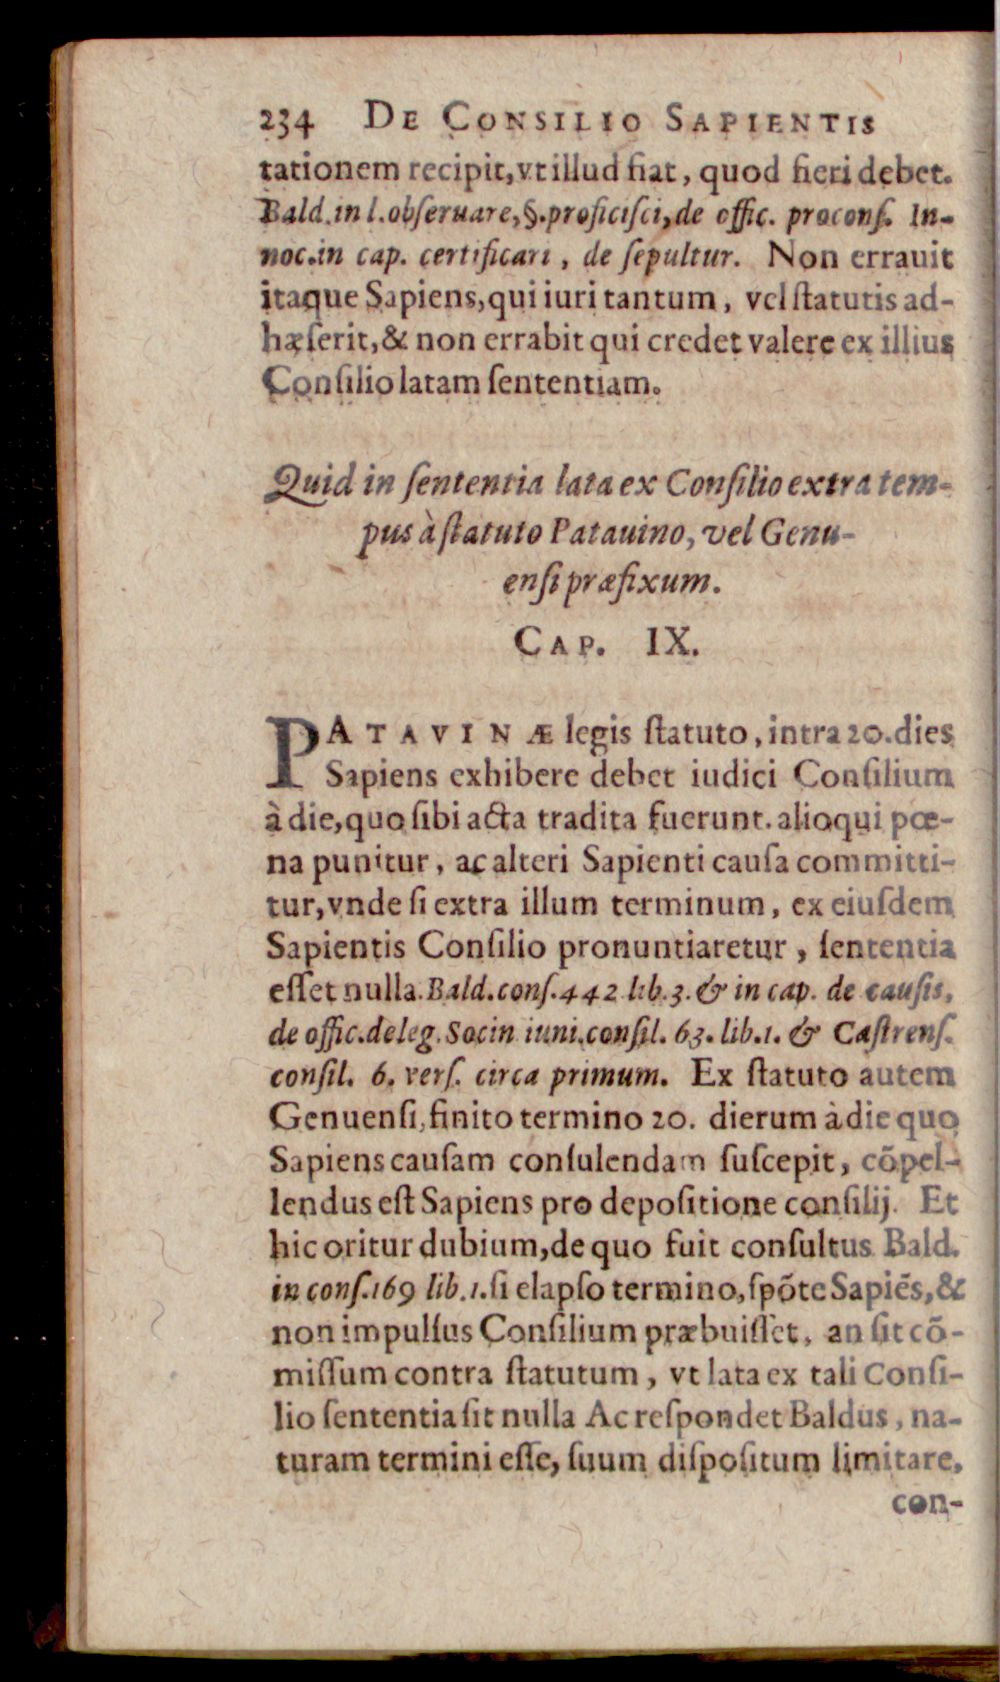 234 DE CONSILIO SAPIENTIS
tationem recipit, vt illud fiat, quod fieri debet.
Bald. in l. obſeruare, §. proficiſci, de offic. proconſ. In-
noc. in cap. certificari, de ſepultur. Non errauit
itaque Sapiens, qui iuri tantum, vel ſtatutis ad-
hæſerit, & non errabit qui credet valere ex illius
Conſilio latam ſententiam.
Quid in ſententia lata ex Conſilio extra tem-
pus à ſtatuto Patauino, vel Genu-
enſi præfixum.
CAP. IX.
PATAVINÆ legis ſtatuto, intra 20. dies
Sapiens exhibere debet iudici Conſilium
à die, quo ſibi acta tradita fuerunt. alioqui pœ-
na punitur, ac alteri Sapienti cauſa committi-
tur, vnde ſi extra illum terminum, ex eiuſdem
Sapientis Conſilio pronuntiaretur, ſententia
eſſet nulla. Bald. conſ. 442 lib. 3. & in cap. de cauſis,
de offic. deleg. Socin iuni. conſil. 63. lib. 1. & Caſtrenſ.
conſil. 6. verſ. circa primum. Ex ſtatuto autem
Genuenſi, finito termino 20. dierum à die quo
Sapiens cauſam conſulendam ſuſcepit, cõpel-
lendus eſt Sapiens pro depoſitione conſilij. Et
hic oritur dubium, de quo fuit conſultus Bald.
in conſ. 169 lib. 1. ſi elapſo termino, ſpõte Sapiẽs, &
non impulſus Conſilium præbuiſſet, an ſit cõ-
miſſum contra ſtatutum, vt lata ex tali Conſi-
lio ſententia ſit nulla Ac reſpondet Baldus, na-
turam termini eſſe, ſuum diſpoſitum limitare,
con-